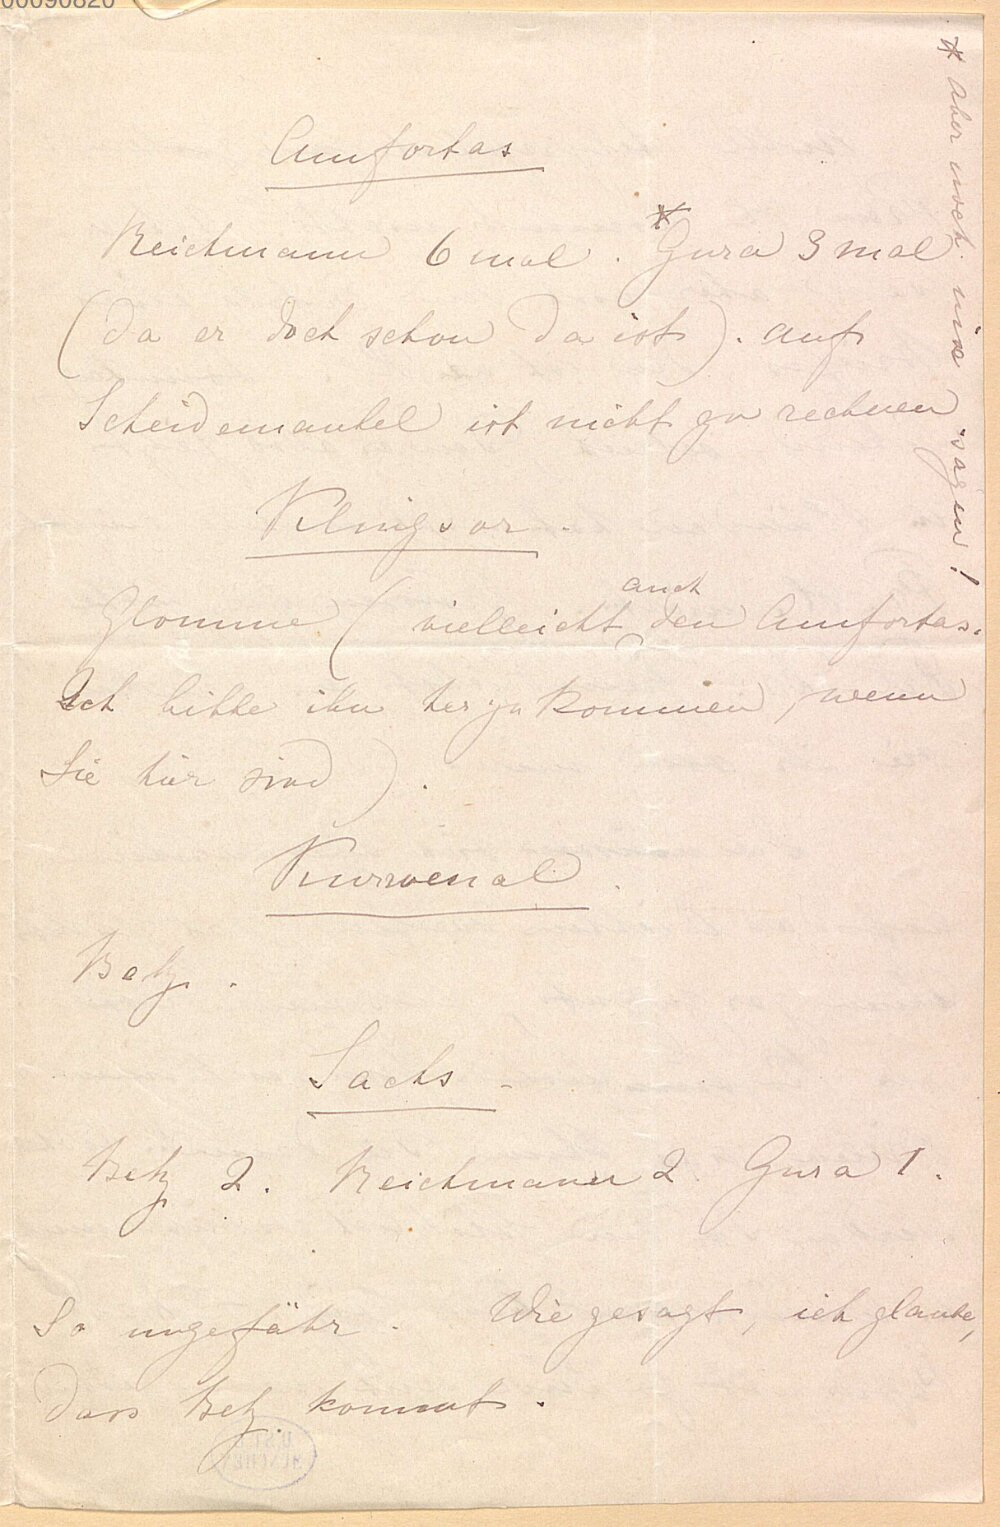 00090820
Amfortas
Reichmann 6 mal. *Gura 3 mal
(da er doch schon da ist). auf
Scheidemantel ist nicht zu rechnen
Klingsor.
Glomme (vielleicht auch den Amfortas.
Ich bitte ihn herzukommen, wenn
Sie hier sind).
Kurwenal.
Betz.
Sachs.
Betz 2. Reichmann 2. Gura 1.
So ungefähr. Wie gesagt, ich glaube,
dass Betz kommt.
* aber noch nix sagen!